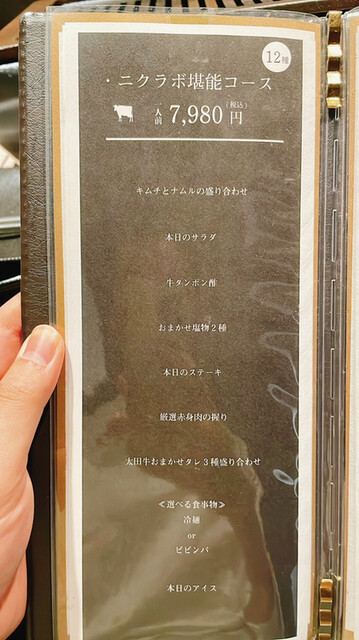 12種
・ニクラボ堪能コース
人前 7,980円 (税込)
キムチとナムルの盛り合わせ
本日のサラダ
牛タンポン酢
おまかせ塩物2種
本日のステーキ
厳選赤身肉の握り
太田牛おまかせタレ3種盛り合わせ
≪選べる食事物≫
冷麺
or
ビビンバ
本日のアイス